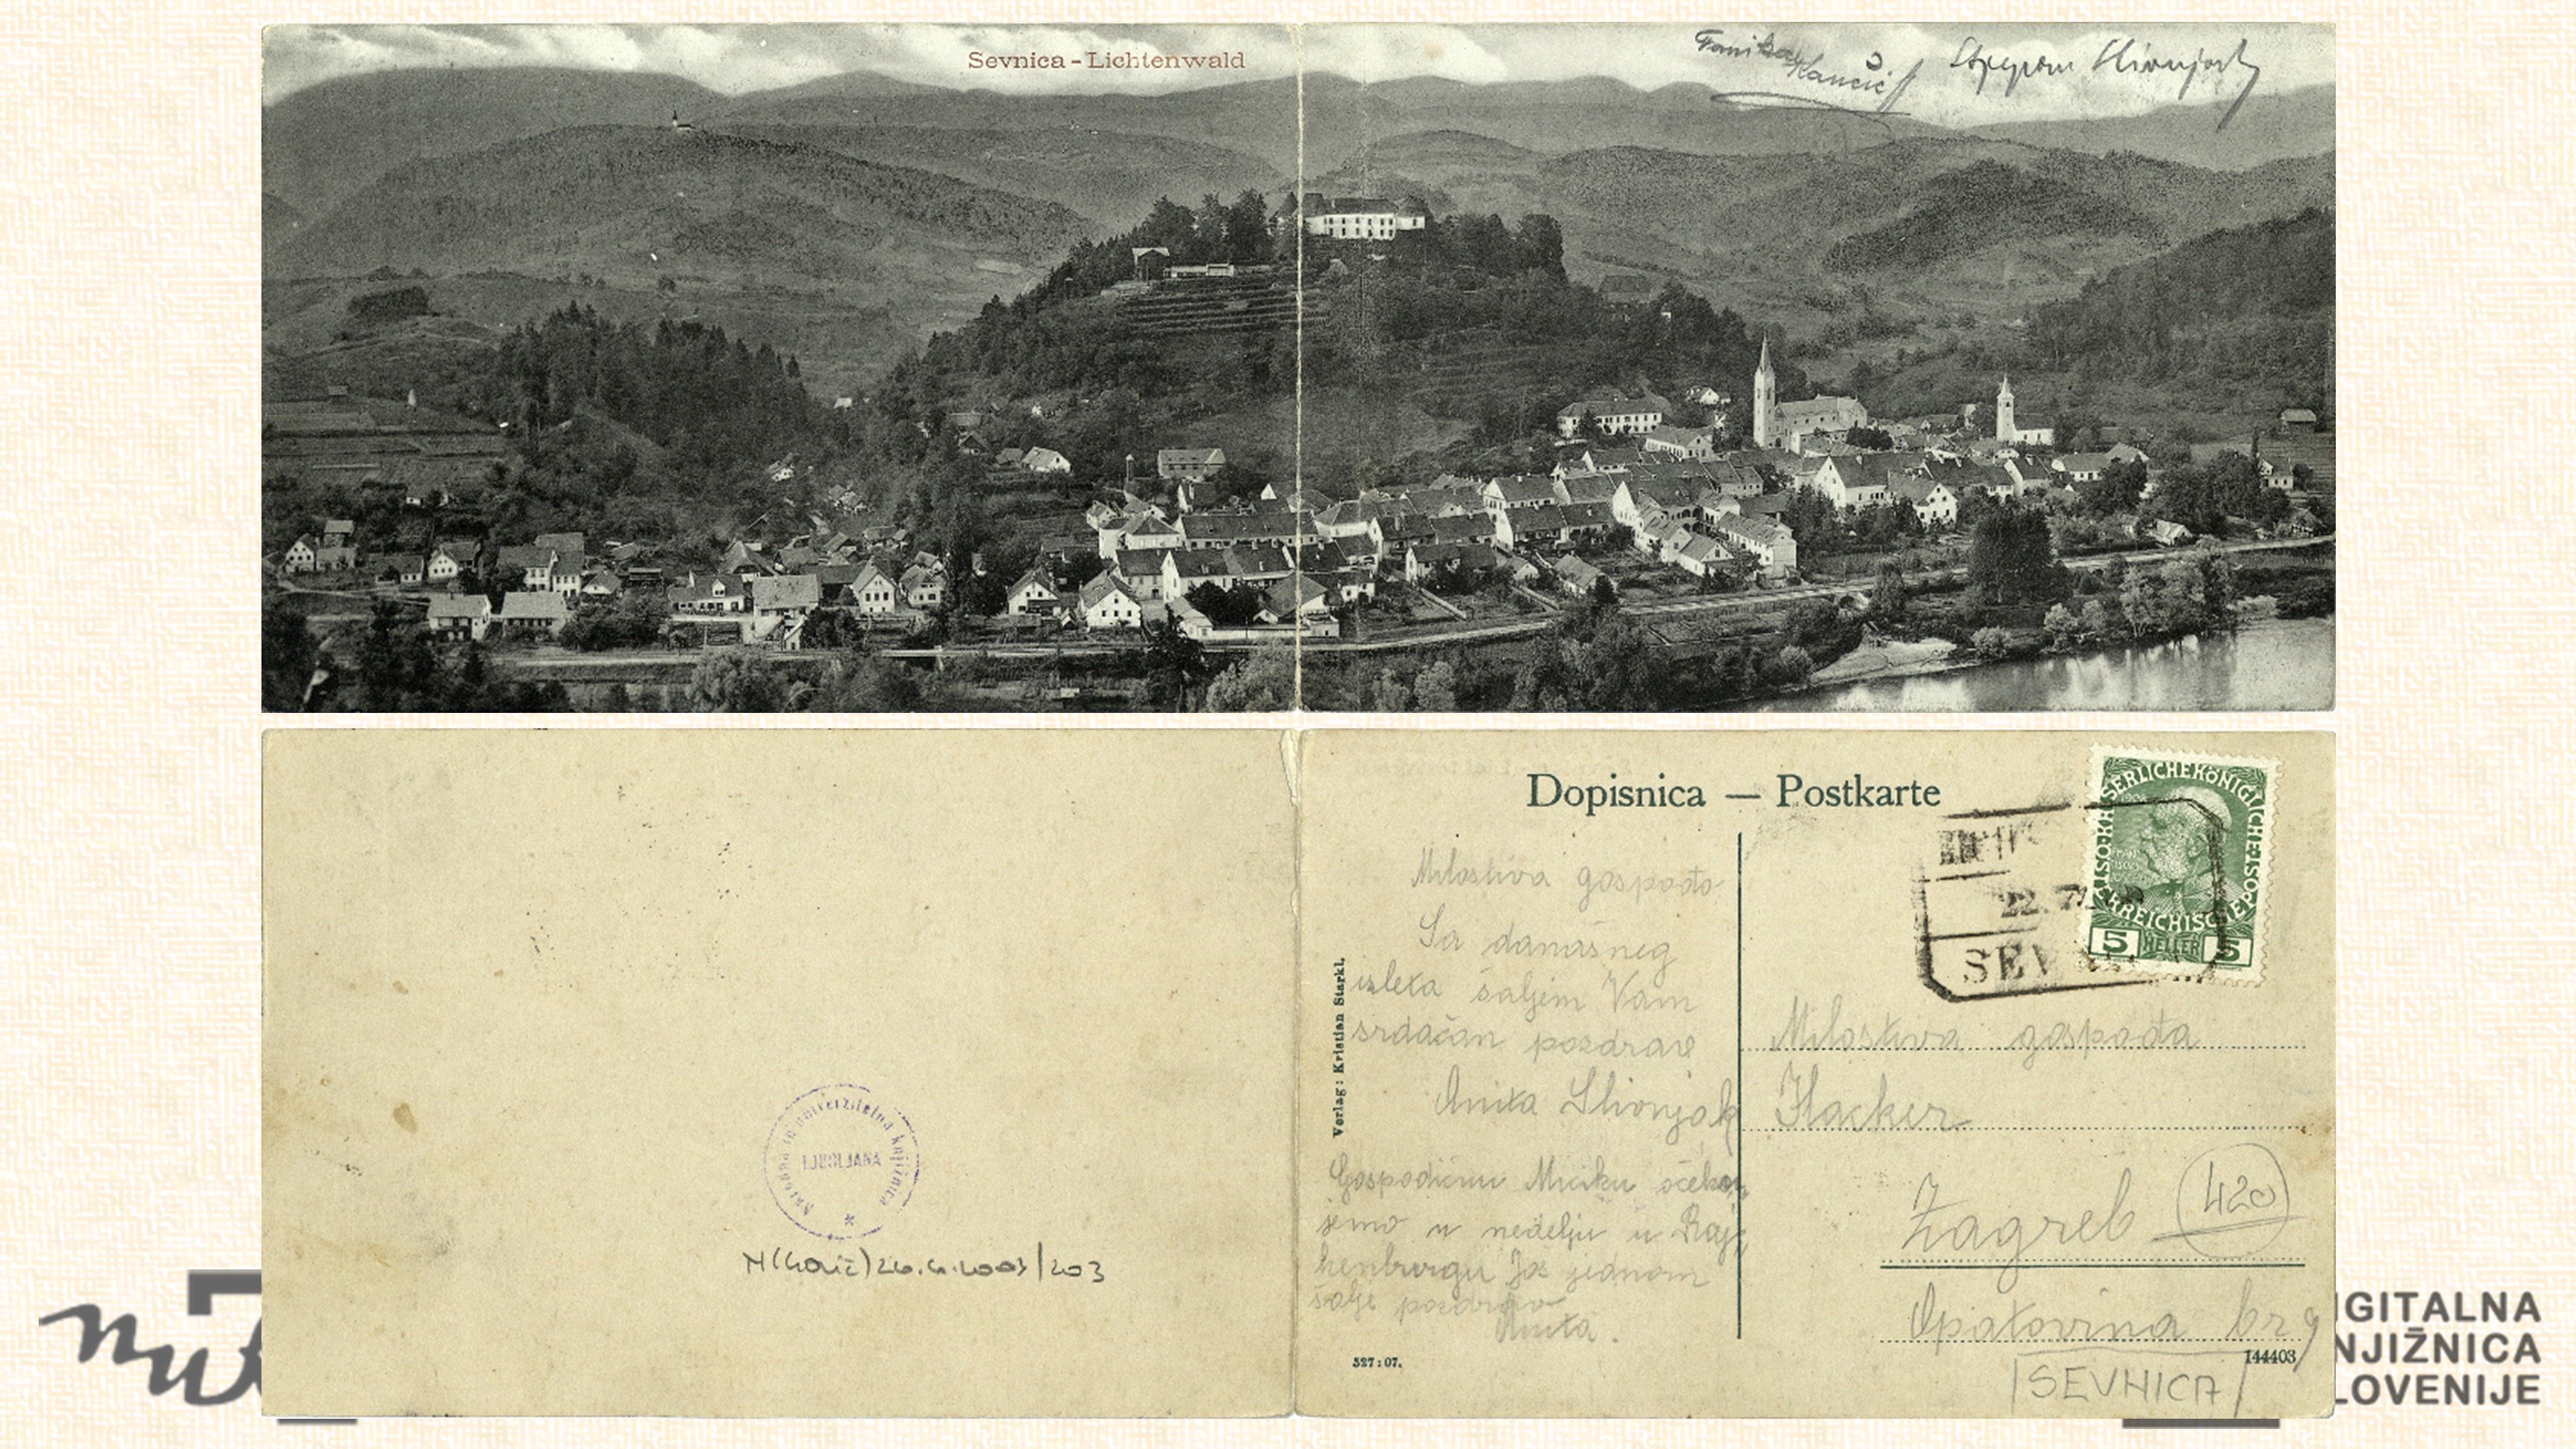 Sevnica - Lichtenwald
Slivonjak
Dopisnica — Postkarte
KAISERLICHE KÖNIGLICHE ÖSTERREICHISCHE POST
5 HELLER 5
22. 7.
SEV
Milostiva gospođo
Sa današneg
izleta šaljem Vam
srdačan pozdrav
Anita Slivonjak
Gospodičnu Miciku očeku
jemo u nedelju u Raj
henburgu Jos jednom
šalje pozdrav
Anita.
Verlag: Kristian Starkl.
527:07.
Milostiva gospođa
Hacker
Zagreb
420
Opatovina br 9
144403
SEVNICA
Narodna in univerzitetna knjižnica
LJUBLJANA
nuk
DIGITALNA
KNJIŽNICA
SLOVENIJE